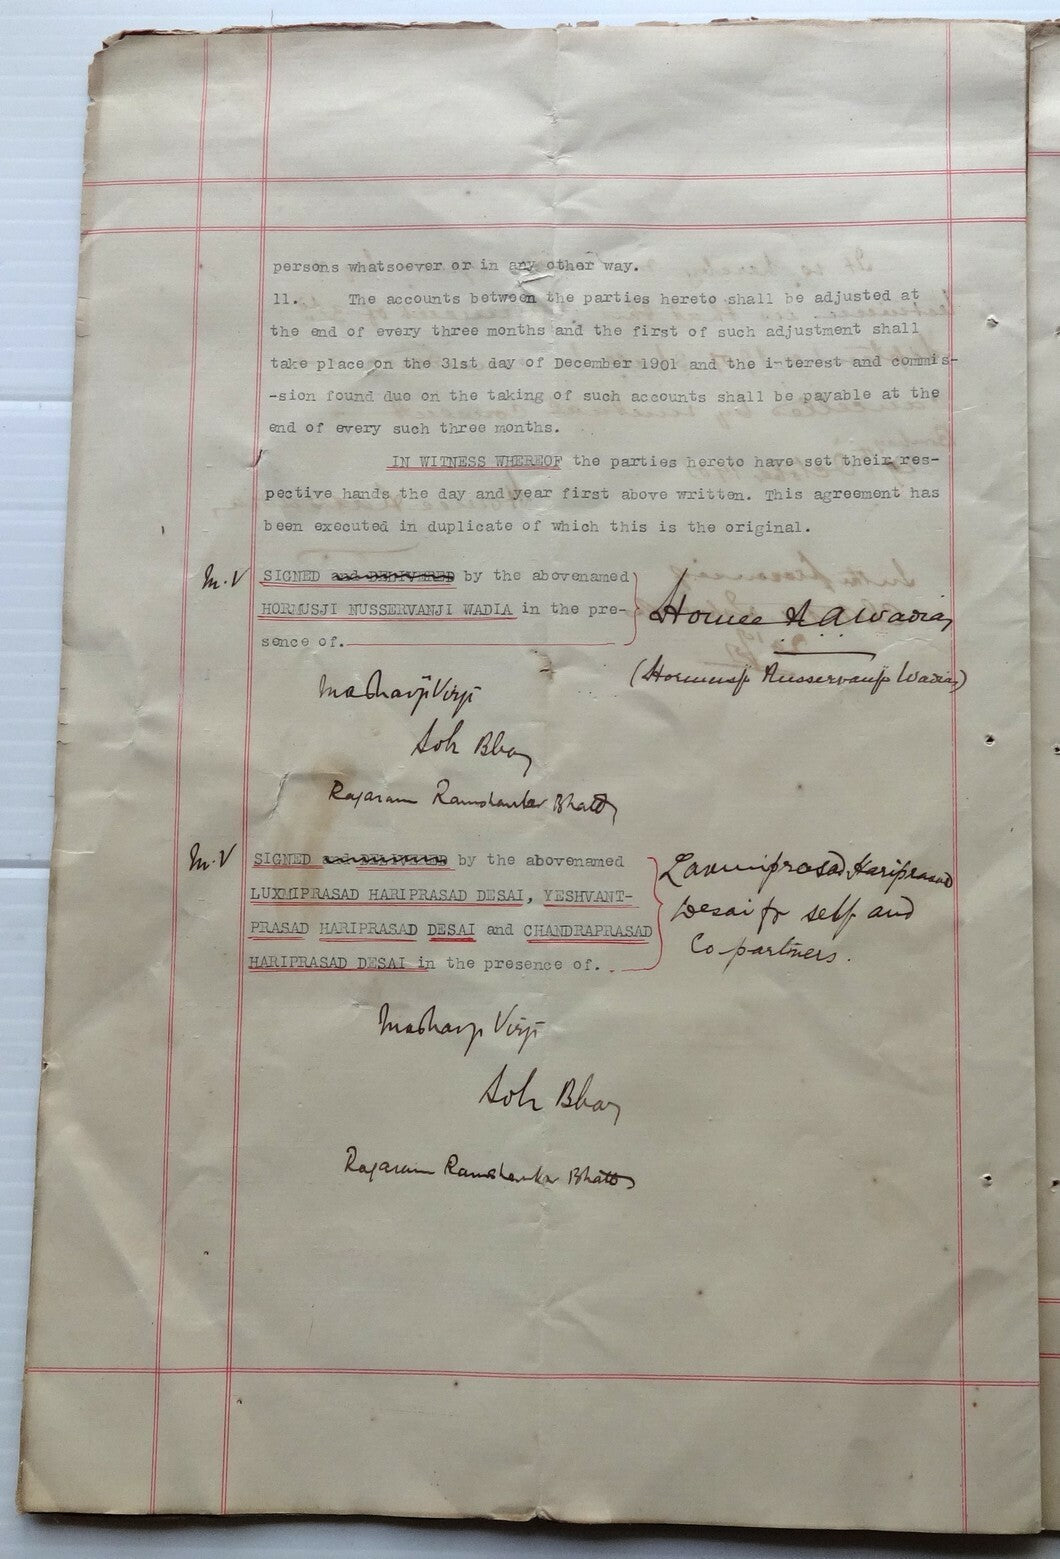 persons whatsoever or in any other way.
11. The accounts between the parties hereto shall be adjusted at
the end of every three months and the first of such adjustment shall
take place on the 31st day of December 1901 and the interest and commis-
-sion found due on the taking of such accounts shall be payable at the
end of every such three months.
IN WITNESS WHEREOF the parties hereto have set their res-
pective hands the day and year first above written. This agreement has
been executed in duplicate of which this is the original.
M.V SIGNED and DELIVERED by the abovenamed
HORMUSJI NUSSERVANJI WADIA in the pre-
sence of.
Homee N A Wadia
(Hormusji Nusservanji Wadia)
Madhavji Virji
Rajaram Ramshankar Bhatt
M.V SIGNED and DELIVERED by the abovenamed
LUXMIPRASAD HARIPRASAD DESAI, YESHVANT-
PRASAD HARIPRASAD DESAI and CHANDRAPRASAD
HARIPRASAD DESAI in the presence of.
Laxmiprasad Hariprasad
Desai for self and
Co-partners.
Madhavji Virji
Rajaram Ramshankar Bhatt